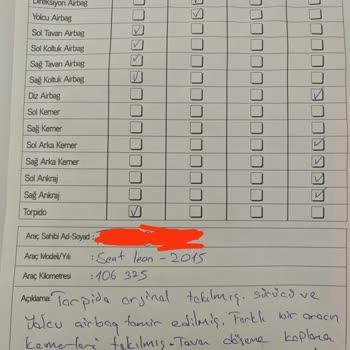 Direksiyon Airbag
Yolcu Airbag
Sol Tavan Airbag
Sol Koltuk Airbag
Sağ Tavan Airbag
Sağ Koltuk Airbag
Diz Airbag
Sol Kemer
Sağ Kemer
Sol Arka Kemer
Sağ Arka Kemer
Sol Ankraj
Sağ Ankraj
Torpido
Araç Sahibi Ad-Soyad :
Araç Modeli/Yılı : Seat leon - 2015
Araç Kilometresi : 106 325
Açıklama: Torpido orjinal takılmış. sürücü ve
Yolcu airbag tamir edilmiş. Farklı bir aracın
kemerleri takılmış. Tavan döşeme kaplama